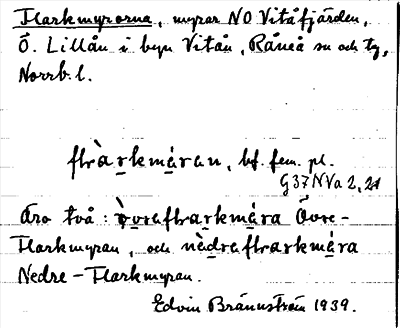 Flarkmyrorna, myrar NO Vitåfjärden,
Ö. Lillån i byn Vitån, Råneå sn och tg,
Norrb. l.
flràrkmáran, bf. fem. pl.
G37NVa 2, 21
äro två: Övre-
Flarkmyran, och
Nedre-Flarkmyran.
Edvin Brännström 1939.